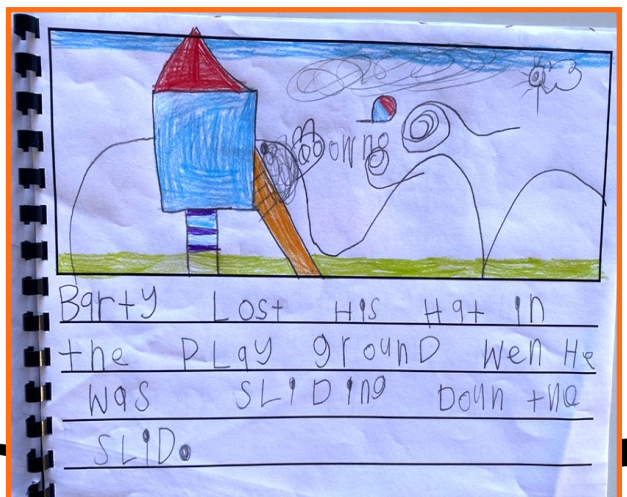 Barty Lost His Hat in
the PLay grounD wen He
was SLiDing Doun the
SLiD.